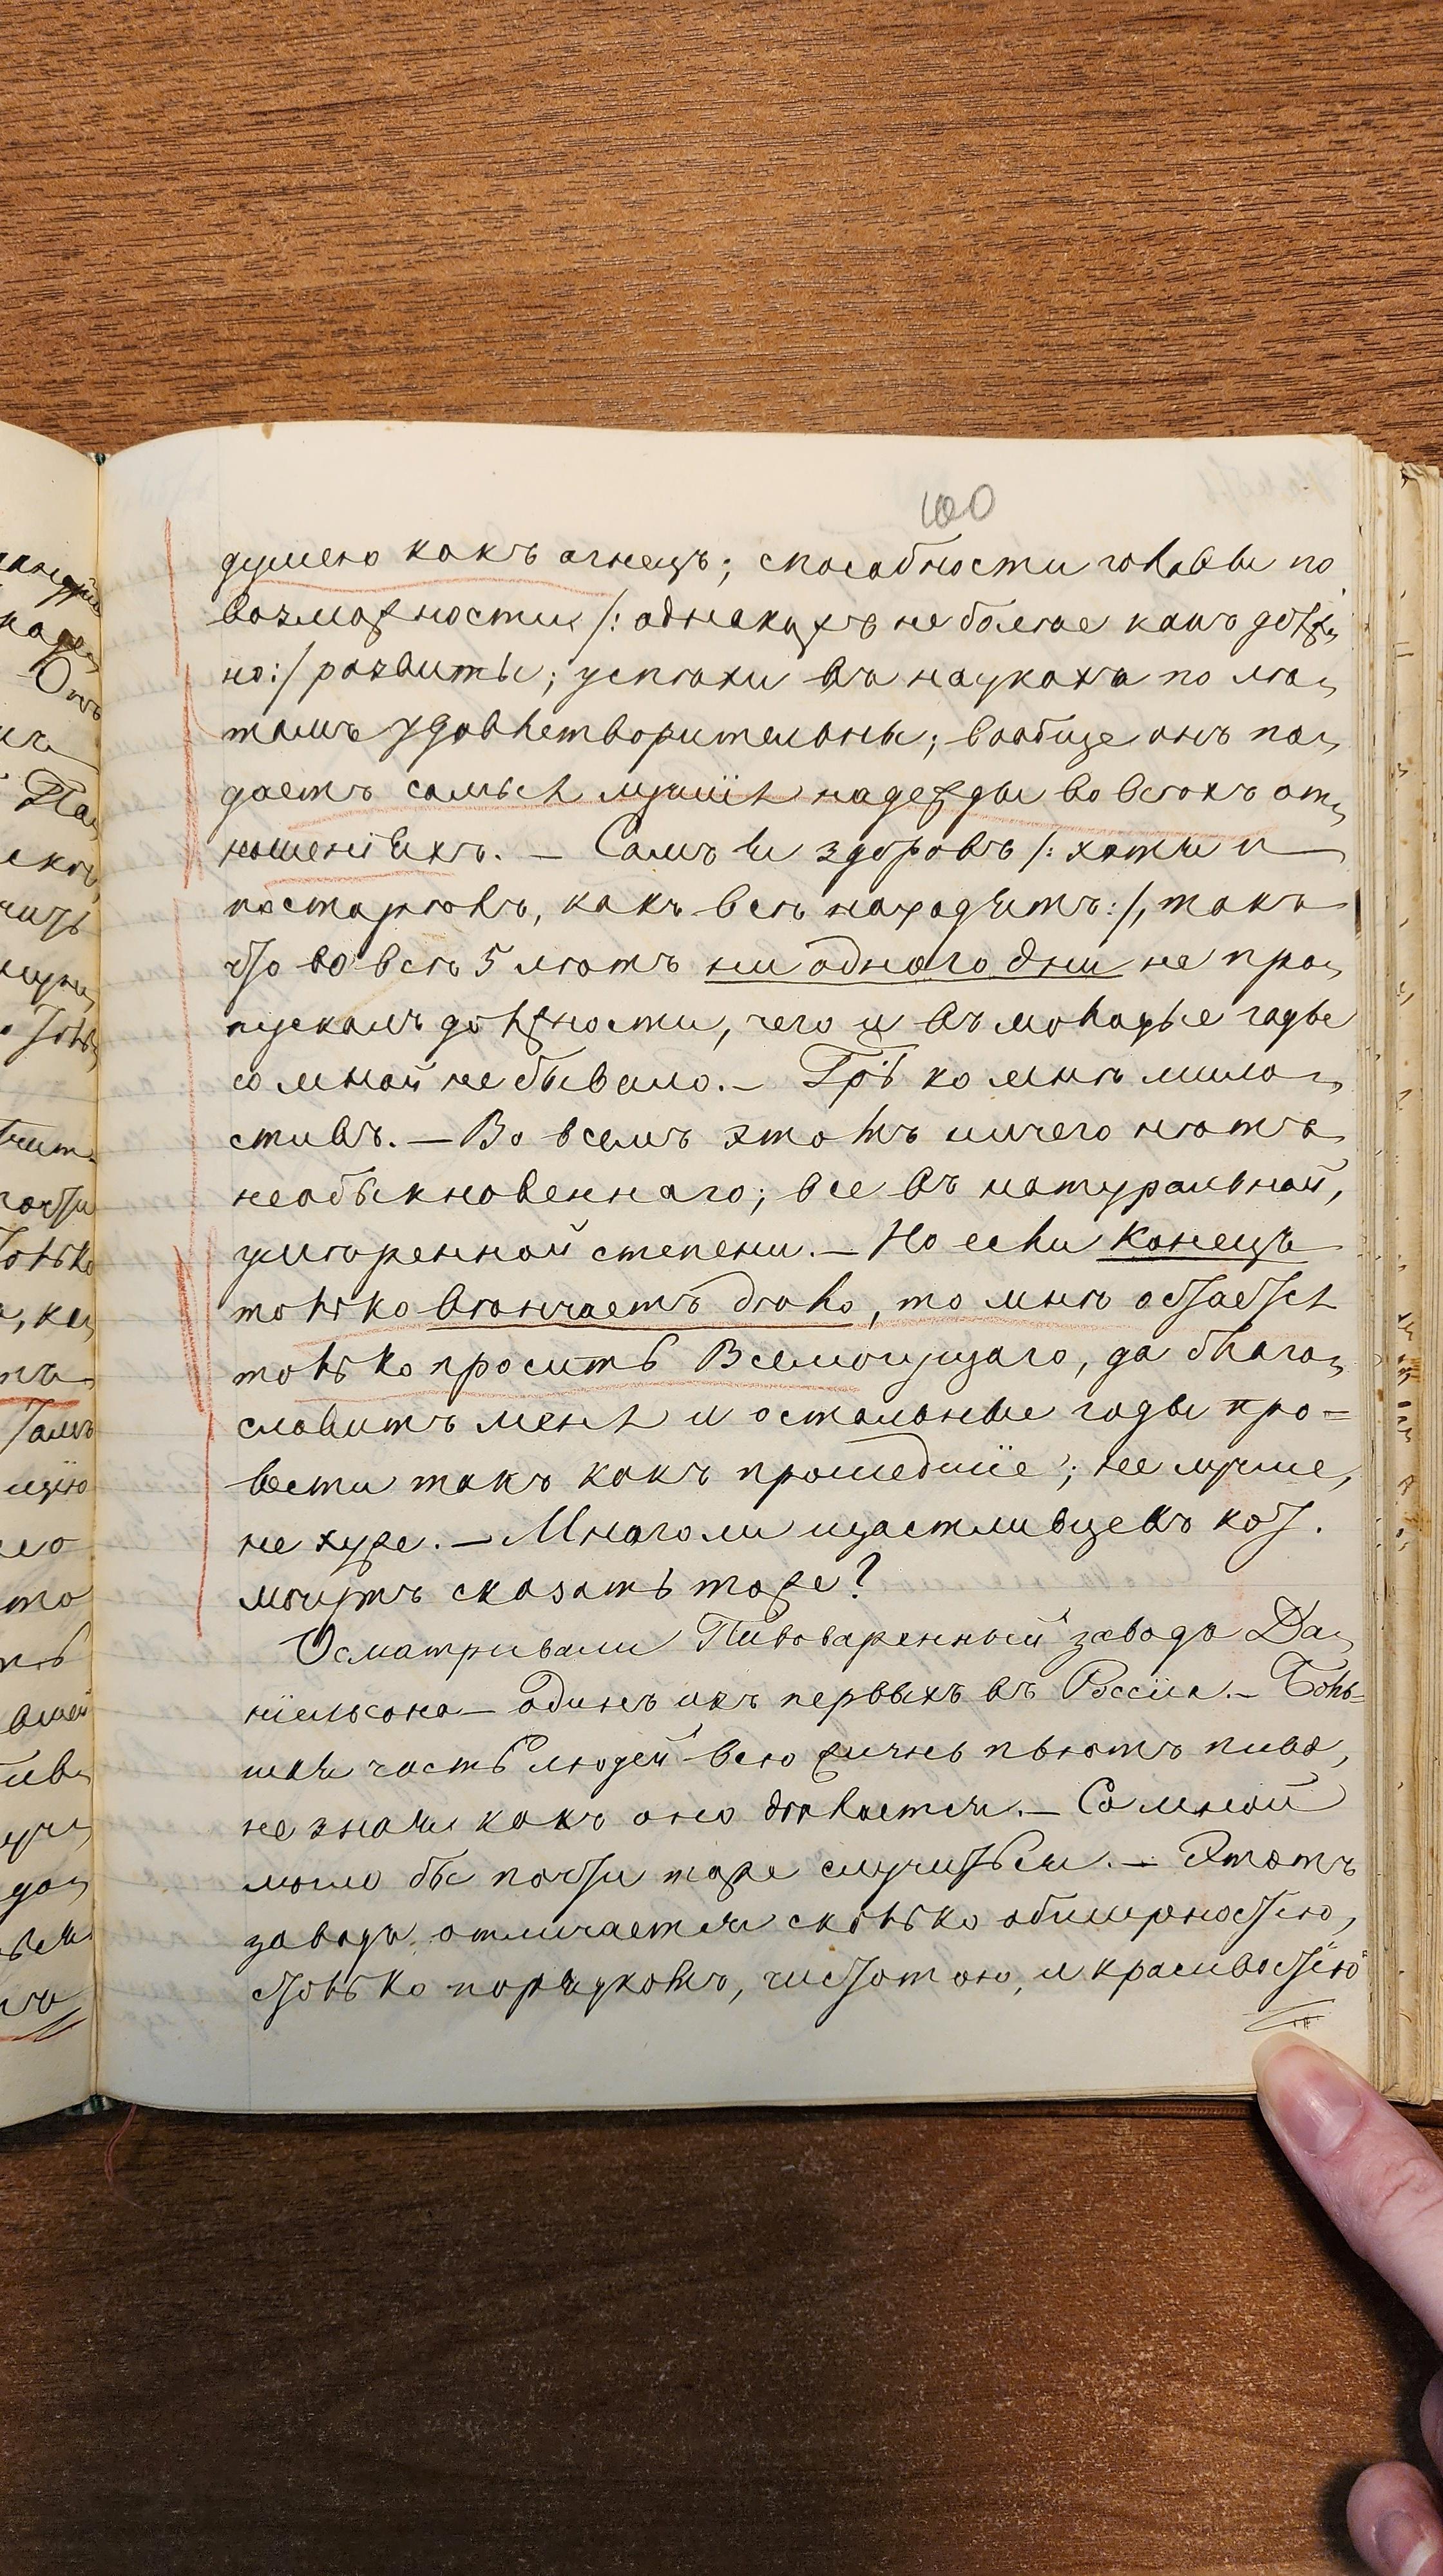 100
душею какъ агнецъ; способности головы по
возможности /: однакожъ не болѣе какъ долж,
но :/ развиты; успѣхи въ наукахъ по лѣ,
тамъ удовлетворительны; вообще онъ по,
даетъ самыя лучшія надежды во всѣхъ от,
ношеніяхъ. — Самъ я здоровъ /: хотя и
постарѣлъ, какъ всѣ находятъ :/, такъ
что во всѣ 5 лѣтъ ни одного дня не про,
пускалъ должности, чего и въ молодые годы
со мной не бывало. — Гдрь ко мнѣ мило,
стивъ. — Во всемъ этомъ ничего нѣтъ
необыкновеннаго; все въ натуральной,
умѣренной степени. — Но если конецъ
только вѣнчаетъ дѣло, то мнѣ остается
только просить Всемогущаго, да благо,
словитъ меня и остальные годы про=
вести такъ какъ прошедшіе; не лучше,
не хуже. — Много ли щастливцевъ кот.
могутъ сказать тоже?
Осматривали Пивоваренный заводъ Да,
ніельсона — одинъ изъ первыхъ въ Россіи. — Боль=
шая часть людей всю жизнь пьютъ пиво,
не зная какъ оно дѣлается. — Со мной
могло бы почти тоже случиться. — Этотъ
заводъ отличается сколько обширностію,
столько порядкомъ, чистотою, и красивостію